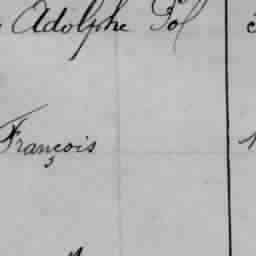 Adolphe Pol
François